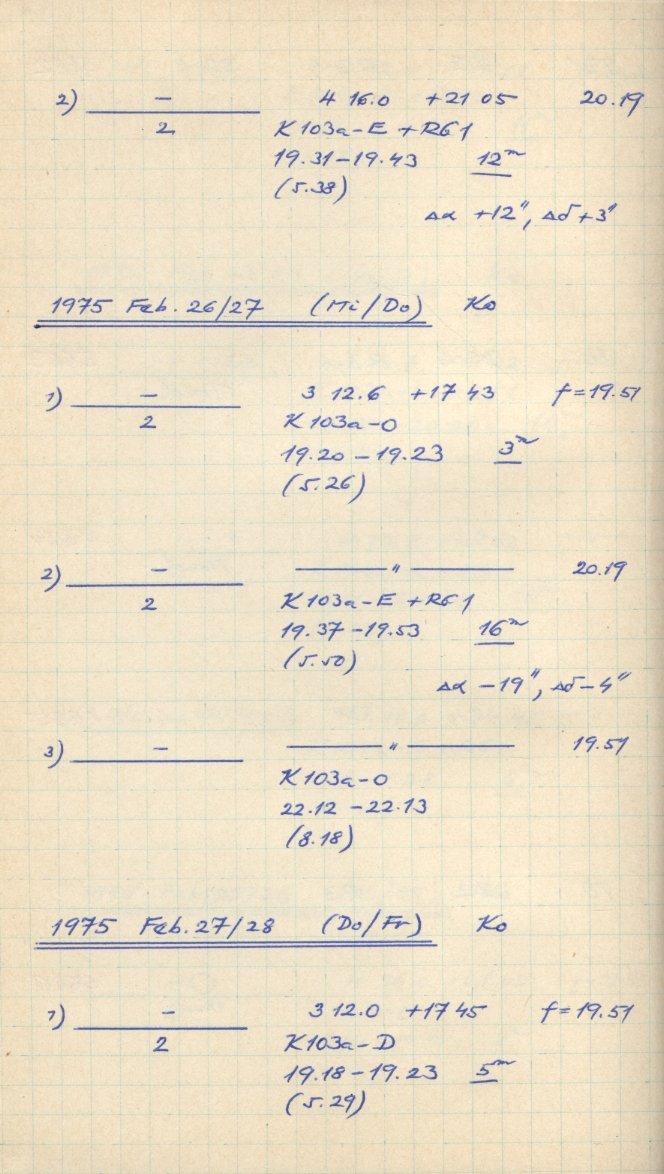 2) — 4 16.0 +21 05 20.19
2 K103a-E + RG1
19.31-19.43 12ᵐ
(5.38)
Δα +12", Δδ+3"
1975 Feb. 26/27 (Mi/Do) Ko
1) — 3 12.6 +17 43 f=19.51
2 K103a-O
19.20-19.23 3ᵐ
(5.26)
2) — — " — 20.19
2 K103a-E + RG1
19.37-19.53 16ᵐ
(5.50)
Δα -19", Δδ-4"
3) — — " — 19.51
K103a-O
22.12-22.13
(8.18)
1975 Feb. 27/28 (Do/Fr) Ko
1) — 3 12.0 +17 45 f=19.51
2 K103a-D
19.18-19.23 5ᵐ
(5.29)